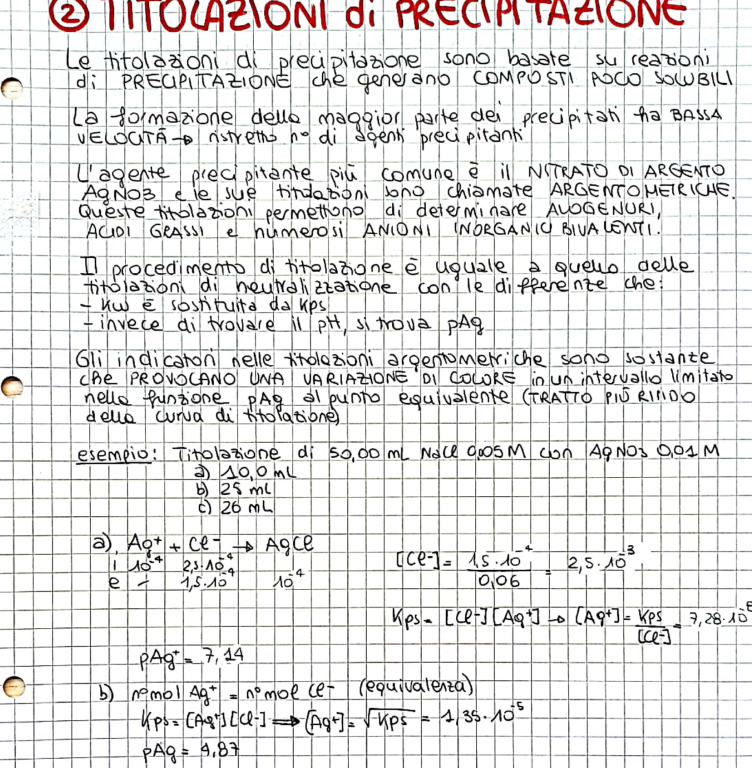 ② TITOLAZIONI di PRECIPITAZIONE
Le titolazioni di precipitazione sono basate su reazioni
di PRECIPITAZIONE che generano COMPOSTI POCO SOLUBILI
La formazione della maggior parte dei precipitati ha BASSA
VELOCITÀ → ristretto n° di agenti precipitanti
L'agente precipitante più comune è il NITRATO DI ARGENTO
AgNO3 e le sue titolazioni sono chiamate ARGENTOMETRICHE.
Queste titolazioni permettono di determinare ALOGENURI,
ACIDI GRASSI e numerosi ANIONI INORGANICI BIVALENTI.
Il procedimento di titolazione è uguale a quello delle
titolazioni di neutralizzazione con le differenze che:
- Kw è sostituita da Kps
- invece di trovare il pH, si trova pAg
Gli indicatori nelle titolazioni argentometriche sono sostanze
che PROVOCANO UNA VARIAZIONE DI COLORE in un intervallo limitato
nella funzione pAg al punto equivalente (TRATTO PIÙ RIPIDO
della curva di titolazione)
esempio: Titolazione di 50,00 mL NaCl 0,05M con AgNO3 0,01 M
a) 10,0 mL
b) 25 mL
c) 26 mL
a) Ag+ + Cl- → AgCl
i 10^-4 2,5·10^-4
e - 1,5·10^-4 10^-4
[Cl-] = 1,5·10^-4 / 0,06 = 2,5·10^-3
Kps = [Cl-][Ag+] → [Ag+] = Kps / [Cl-] = 7,28·10^-8
pAg+ = 7,14
b) n° mol Ag+ = n° mol Cl- (equivalenza)
Kps = [Ag+][Cl-] ⟹ [Ag+] = √Kps = 1,35·10^-5
pAg = 4,87